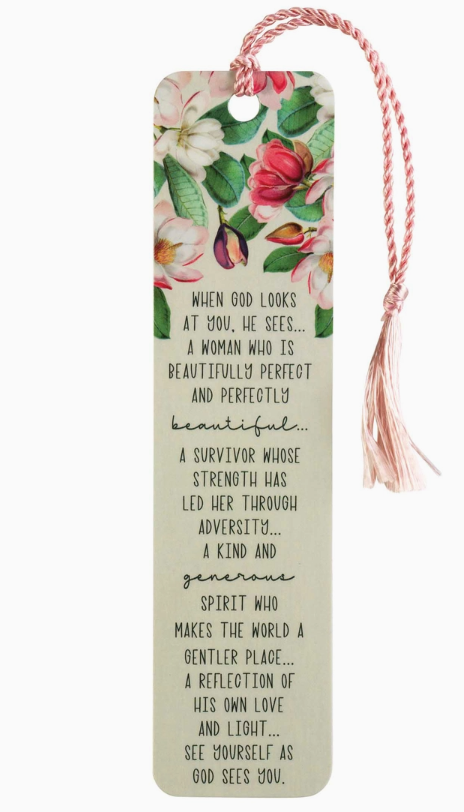 WHEN GOD LOOKS
AT YOU, HE SEES...
A WOMAN WHO IS
BEAUTIFULLY PERFECT
AND PERFECTLY
beautiful...
A SURVIVOR WHOSE
STRENGTH HAS
LED HER THROUGH
ADVERSITY...
A KIND AND
generous
SPIRIT WHO
MAKES THE WORLD A
GENTLER PLACE...
A REFLECTION OF
HIS OWN LOVE
AND LIGHT...
SEE YOURSELF AS
GOD SEES YOU.